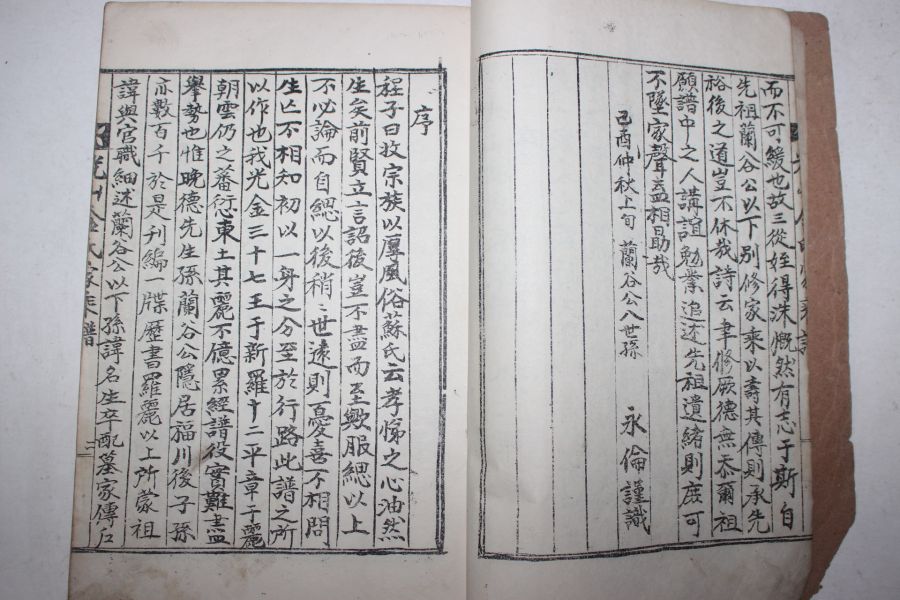 而不可緩也故三從姪得洙慨然有志于斯自
先祖蘭谷公以下別修家乘以壽其傳則承先
裕後之道豈不休哉詩云聿修厥德無忝爾祖
願譜中之人講誼勉業追述先祖遺緒則庶可
不墜家聲盍相助哉
己酉仲秋上旬 蘭谷公八世孫 永倫謹識
序
程子曰收宗族以厚風俗蘇氏云孝悌之心油然
生矣前賢立言詔後豈不盡而至歟服緦以上
不必論而自緦以後稍〻世遠則憂喜不相問
生亡不相知初以一身之分至於行路此譜之所
以作也我光金三十七王于新羅十二平章于麗
朝雲仍之蕃衍東土其麗不億累經譜役實難盡
擧勢也惟晩德先生孫蘭谷公隱居福川後子孫
亦數百千於是刊編一牒歷書羅麗以上所蒙祖
諱與官職細述蘭谷公以下孫諱名生卒配墓家傳
光山金氏家乘譜